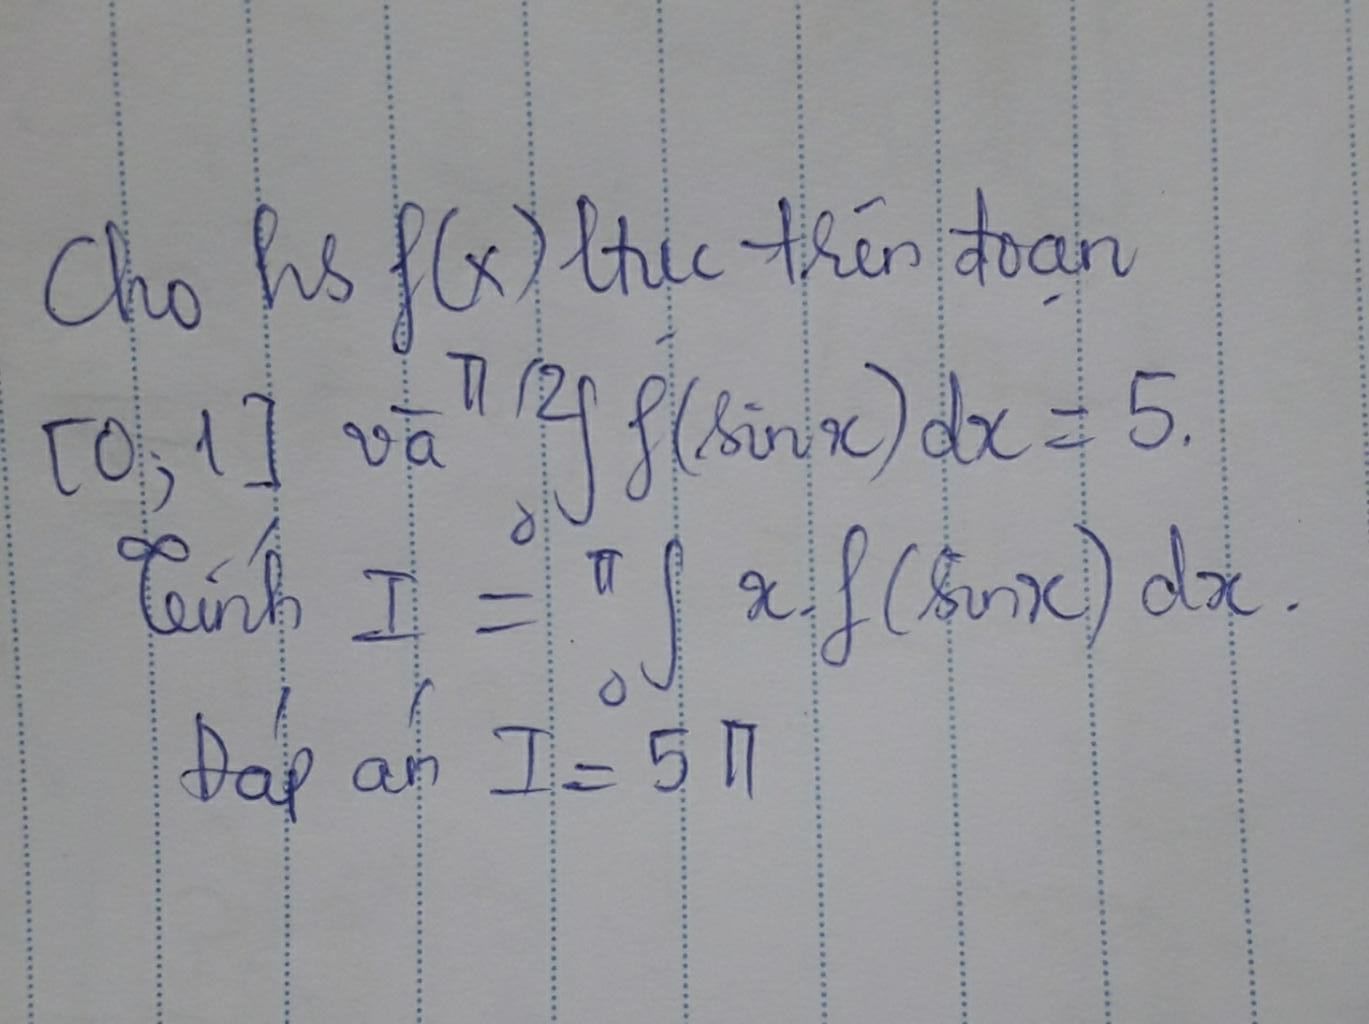 Cho hs f(x) ltục trên đoạn
[0; 1] và π/2∫0 f(sinx) dx = 5.
Tính I = π∫0 x.f(sinx) dx.
Đáp án I = 5π